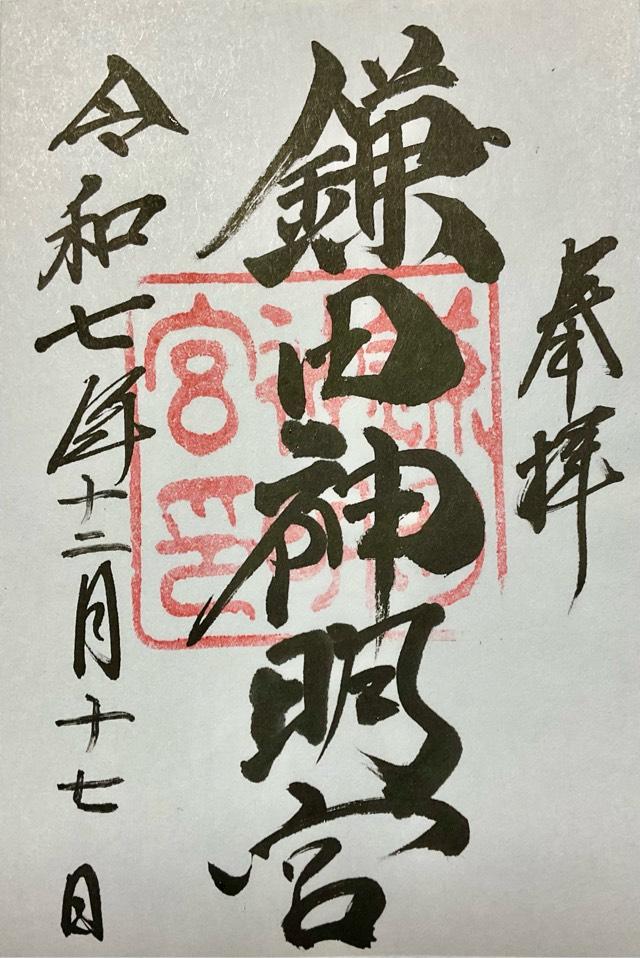 奉拝
鎌田神明宮
令和七年十二月十七日